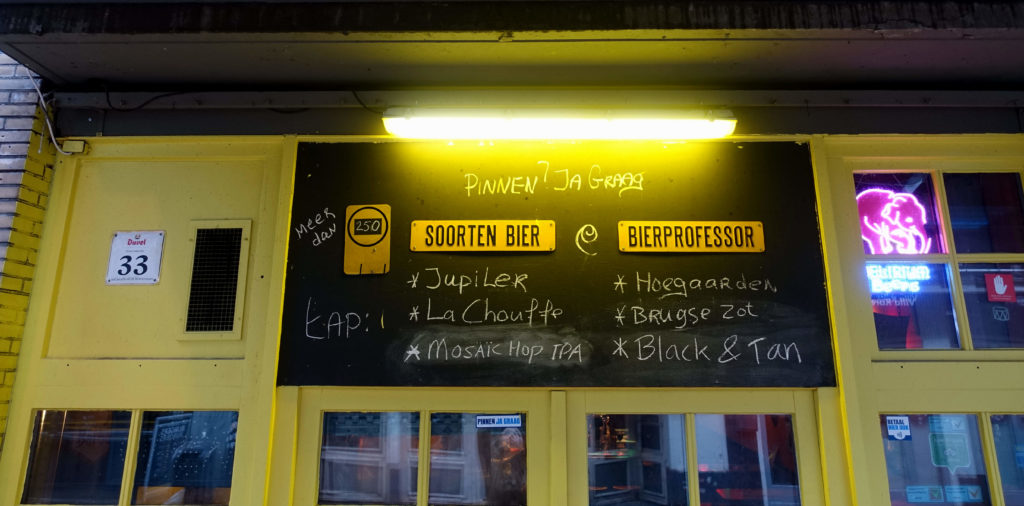 PINNEN? JA GRAAG
MEER
dan
250
SOORTEN BIER
BIERPROFESSOR
* JUPILER
* La Chouffe
* Mosaïc Hop IPA
TAP:
* Hoegaarden
* Brugse Zot
* Black & Tan
Duvel
33
PINNEN JA GRAAG
BETAAL
HIER OOK